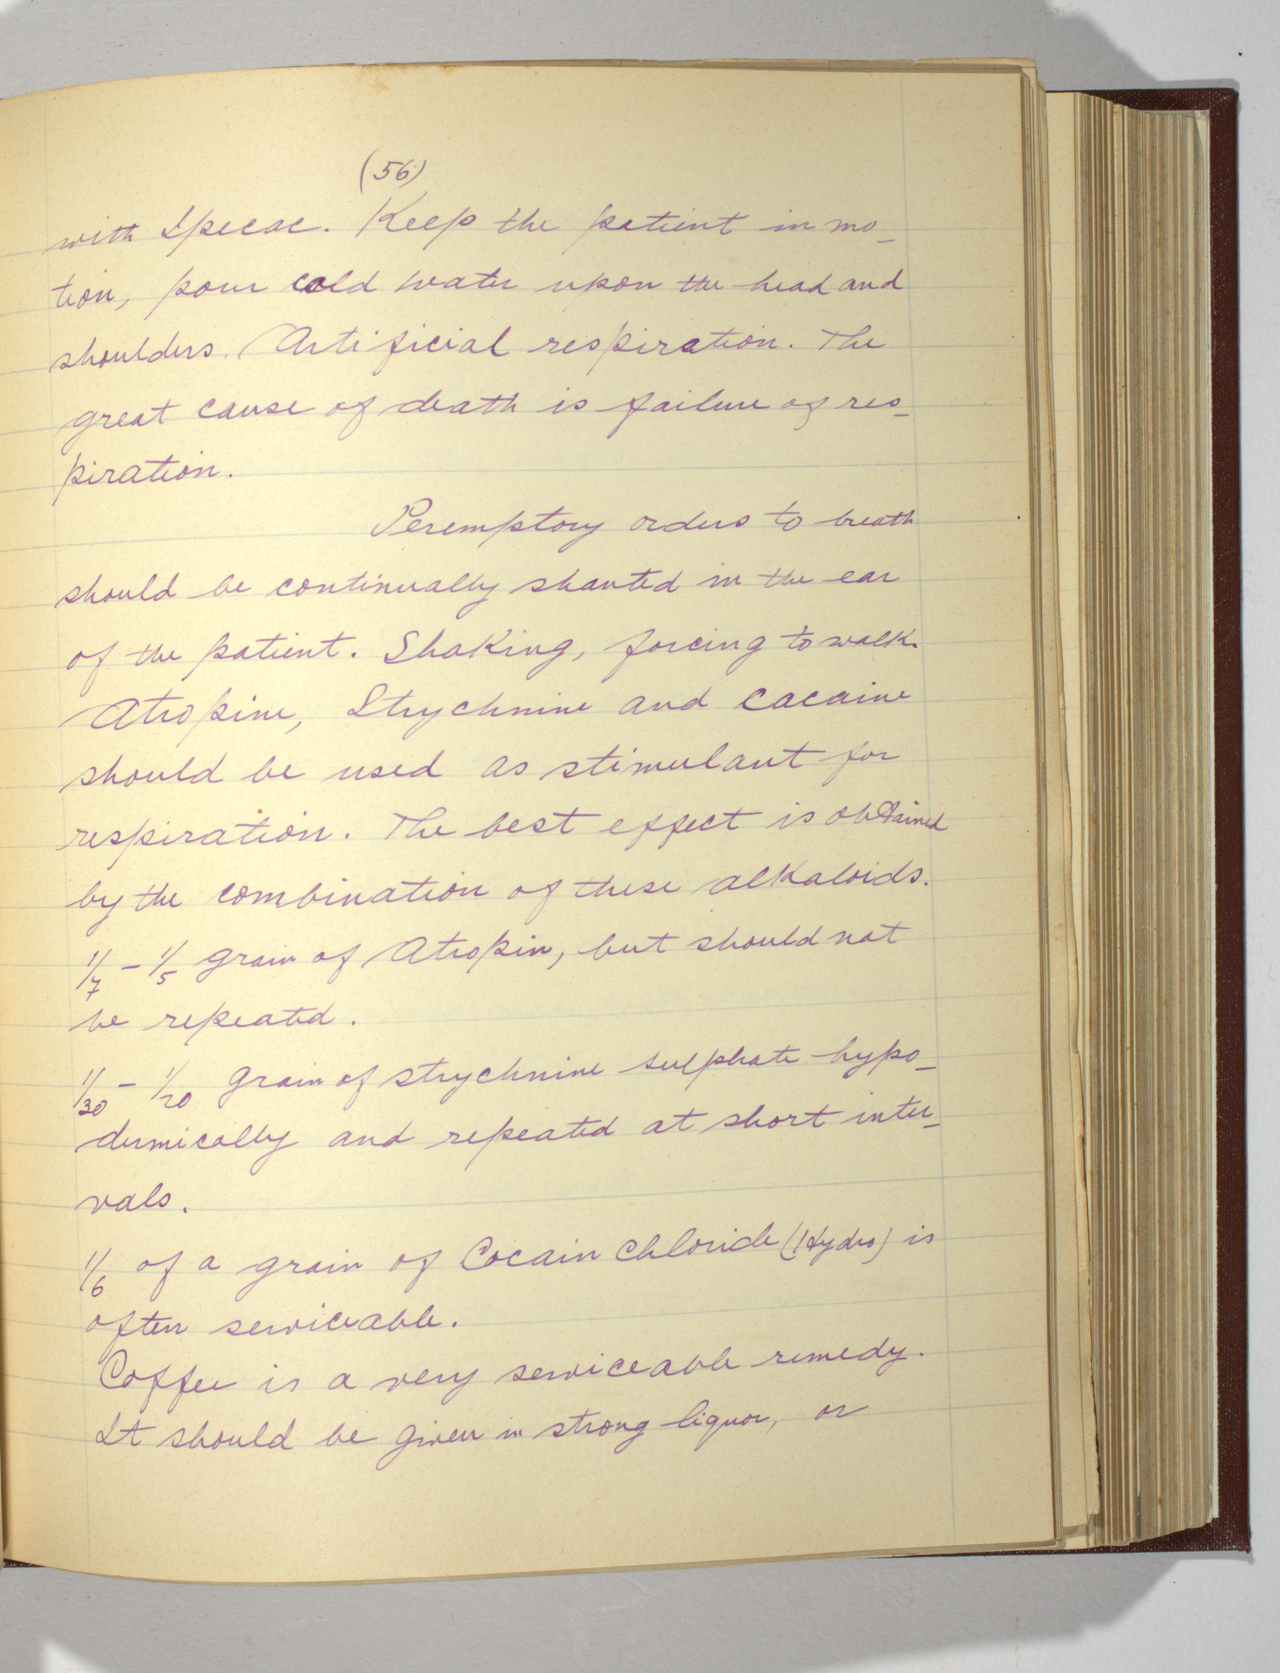 (56)
with Ipecac. Keep the patient in mo-
tion, pour cold water upon the head and
shoulders. Artificial respiration. The
great cause of death is failure of res-
piration.
Peremptory orders to breath
should be continually shouted in the ear
of the patient. Shaking, forcing to walk.
Atropine, Strychnine and cacaine
should be used as stimulant for
respiration. The best effect is obtained
by the combination of these alkaloids.
1/7 - 1/5 grain of Atropin, but should not
be repeated.
1/30 - 1/20 grain of strychnine sulphate hypo-
dermically and repeated at short inter-
vals.
1/6 of a grain of Cocain chloride (Hydro) is
often serviceable.
Coffee is a very serviceable remedy.
It should be given in strong liquor, or